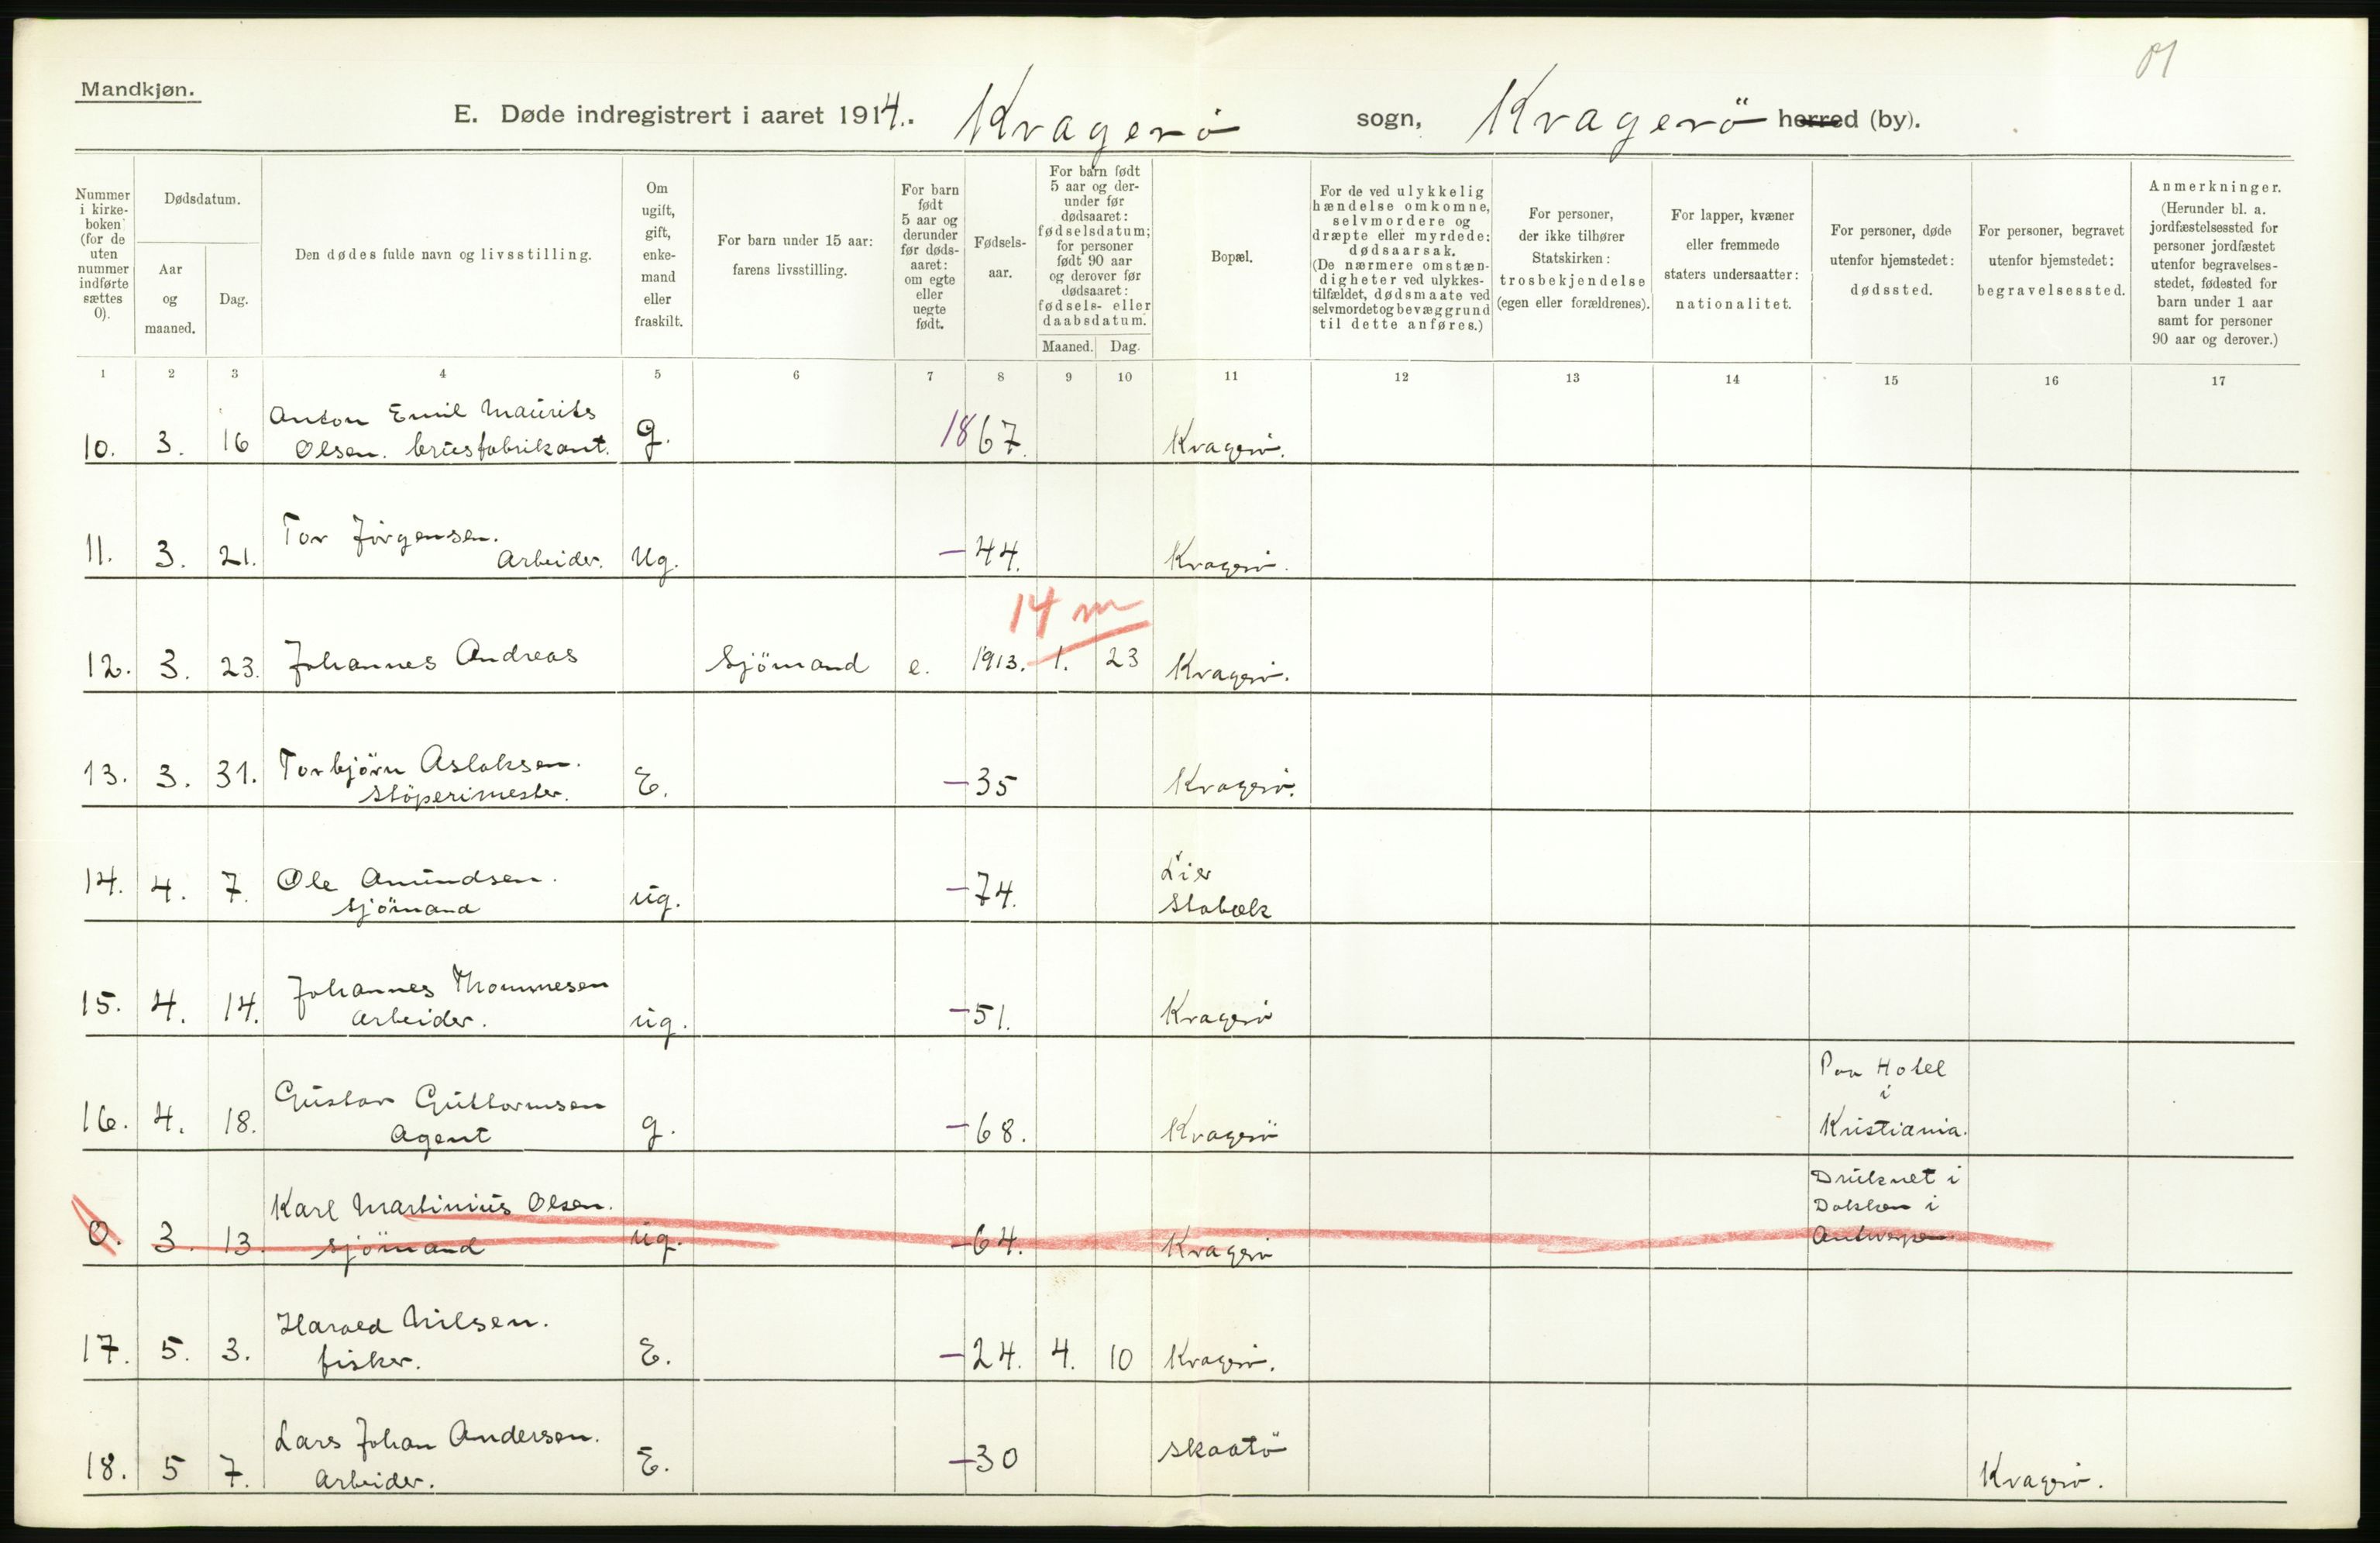 Mandkjøn.
E. Døde indregistrert i aaret 1914. Kragerö sogn, Kragerö herred (by).
Nummer i kirke-boken (for de uten nummer indførte sættes 0).
Dødsdatum.
Aar og maaned.
Dag.
Den dødes fulde navn og livsstilling.
Om ugift, gift, enke-mand eller fraskilt.
For barn under 15 aar: farens livsstilling.
For barn født 5 aar og derunder før døds-aaret: om egte eller uegte født.
Fødsels-aar.
For barn født 5 aar og der-under før dødsaaret: fødselsdatum; for personer født 90 aar og derover før dødsaaret: fødsels- eller daabsdatum.
Maaned.
Dag.
Bopæl.
For de ved ulykkelig hændelse omkomne, selvmordere og dræpte eller myrdede: dødsaarsak. (De nærmere omstæn-digheter ved ulykkes-tilfældet, dødsmaate ved selvmordet og bevæggrund til dette anføres.)
For personer, der ikke tilhører Statskirken: trosbekjendelse (egen eller forældrenes).
For lapper, kvæner eller fremmede staters undersaatter: nationalitet.
For personer, døde utenfor hjemstedet: dødssted.
For personer, begravet utenfor hjemstedet: begravelsessted.
Anmerkninger. (Herunder bl. a. jordfæstelsessted for personer jordfæstet utenfor begravelses-stedet, fødested for barn under 1 aar samt for personer 90 aar og derover.)
1 2 3 4 5 6 7 8 9 10 11 12 13 14 15 16 17
10. 3. 16 Anton Emil Maurits
Olsen. brusfabrikant. g. 1867. Kragerö.
11. 3. 21. Tor Jörgensen.
Arbeider. Ug. – 44. Kragerö.
14 m
12. 3. 23. Johannes Andreas Sjömand e. 1913. 1. 23 Kragerö.
13. 3. 31. Torbjörn Aslaksen.
Stöperimester. E. – 35 Kragerö.
14. 4. 7. Ole Amundsen.
Sjömand ug. – 74. Lier
Stabæk
15. 4. 14. Johannes Thommesen
Arbeider. ug. – 51. Kragerö
16. 4. 18. Gustav Guttormsen
Agent g. – 68. Kragerö
Paa Hotel
i
Kristiania.
0. 3. 13. Karl Martinius Olsen.
Sjömand ug. – 64. Kragerö
Druknet i
Dokken i
Antwerpen.
17. 5. 3. Harald Nilsen.
fisker. E. – 24. 4. 10 Kragerö.
18. 5 7. Lars Johan Andersen.
Arbeider. E. – 30 Skaatö Kragerö.